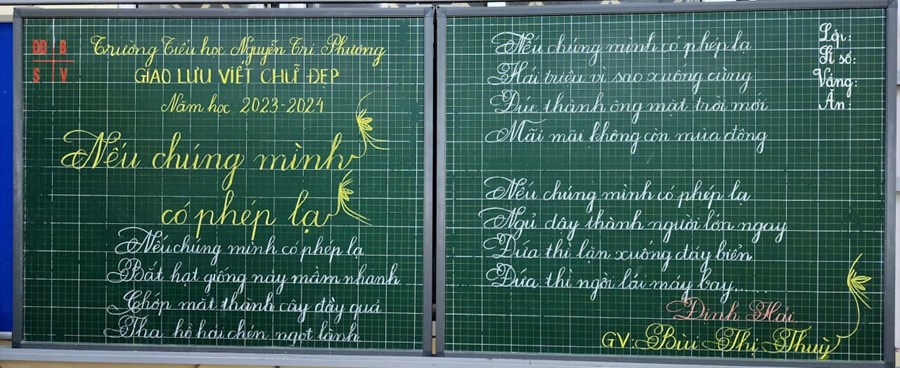 ĐĐ B
S V
Trường Tiểu học Nguyễn Tri Phương
GIAO LƯU VIẾT CHỮ ĐẸP
Năm học 2023-2024
Nếu chúng mình
có phép lạ
Nếu chúng mình có phép lạ
Bắt hạt giống nảy mầm nhanh
Chớp mắt thành cây đầy quả
Tha hồ hái chén ngọt lành
Nếu chúng mình có phép lạ
Hái triệu vì sao xuống cùng
Đúc thành ông mặt trời mới
Mãi mãi không còn mùa đông
Nếu chúng mình có phép lạ
Ngủ dậy thành người lớn ngay
Đứa thì lặn xuống đáy biển
Đứa thì ngồi lái máy bay...
Định Hải
GV: Bùi Thị Thuỳ
Lớp:
Sĩ số:
Vắng:
Ăn: